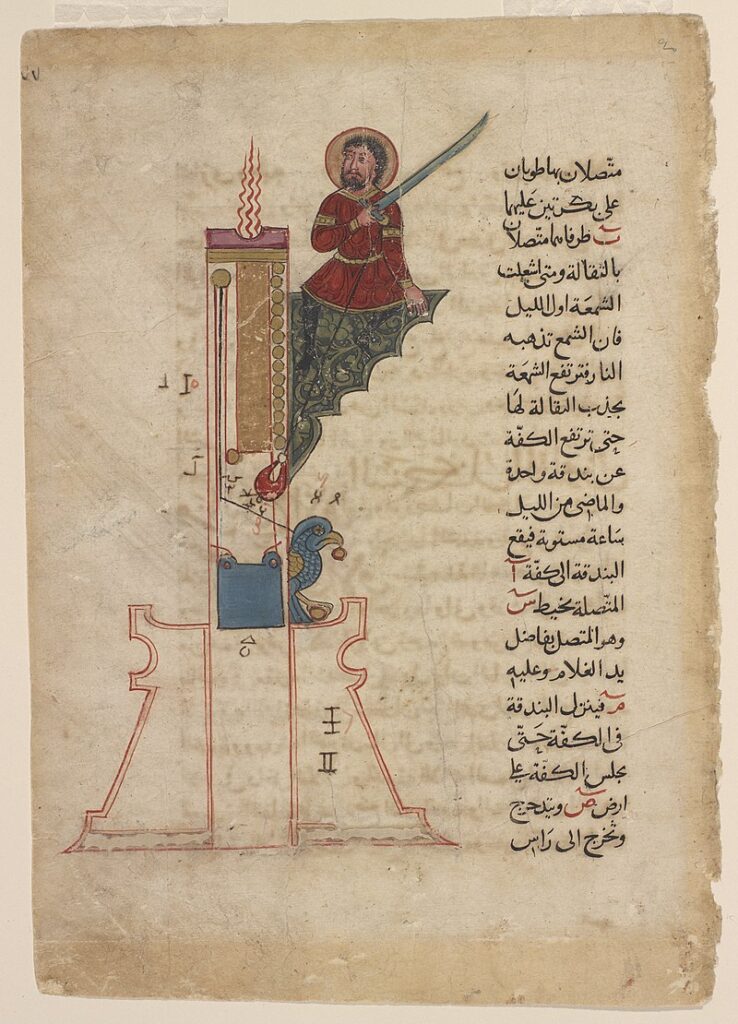 متصلان بها طويان
على بكرتين عليهما
ت طرفاهما متصلان
بالثقالة ومتى اشعلت
الشمعة اول الليل
فان الشمع تذهبه
النار فترتفع الشمعة
بجذب الثقالة لها
حتى ترتفع الكفة
عن بندقة واحدة
والماضى من الليل
ساعة مستوية فيقع
البندقة الى كفة آ
المتصلة بخيط س
وهو المتصل بفاضل
يد الغلام وعليه
م فينزل البندقة
فى الكفة حتى
يجلس الكفة على
ارض ص ويتدحرج
وتخرج الى راس